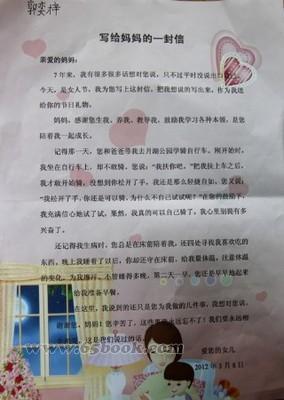 郭奕祥
写给妈妈的一封信
亲爱的妈妈:
7年来,我有很多很多话想对您说,只不过平时没说出口
今天,是女人节,我为您写上这封信,把我想说的写出来,作为我送
给你的节日礼物。
妈妈,感谢您生我、养我、教导我、鼓励我学习各种本领,是您
陪着我一起成长。
记得那一天,您和爸爸带我去月湖公园学骑自行车。刚开始时,
我坐在自行车上,却不敢骑,您说:“我扶你吧。”把我扶上车之后,
我才敢开始骑,没想到你松开了手,我还是那么轻捷自如,您又说:
“我松开了手,你还是可以骑,为什么不自己试试呢?”在您的鼓励下,
我充满信心地试了试,果然,我真的可以自己骑了,我心里别提有多
兴奋了。
还记得我生病时,您总是在床前陪着我,还四处寻找我喜欢吃的
东西,晚上我睡着了以后,你却还守在床前,给我量体温,注意体温
的变化,为我擦汗,小管睡得多晚,第二天一早,您还是早早地起来
给我准备早餐。
在这里,我说到的还只是您为我做的几件事,我想对您说,
谢谢您,妈妈!您辛苦了,这些事我永远忘不了!我们要永远相
这是我们说过的话。
爱您的女儿
2012年3月8日
www.65book.com